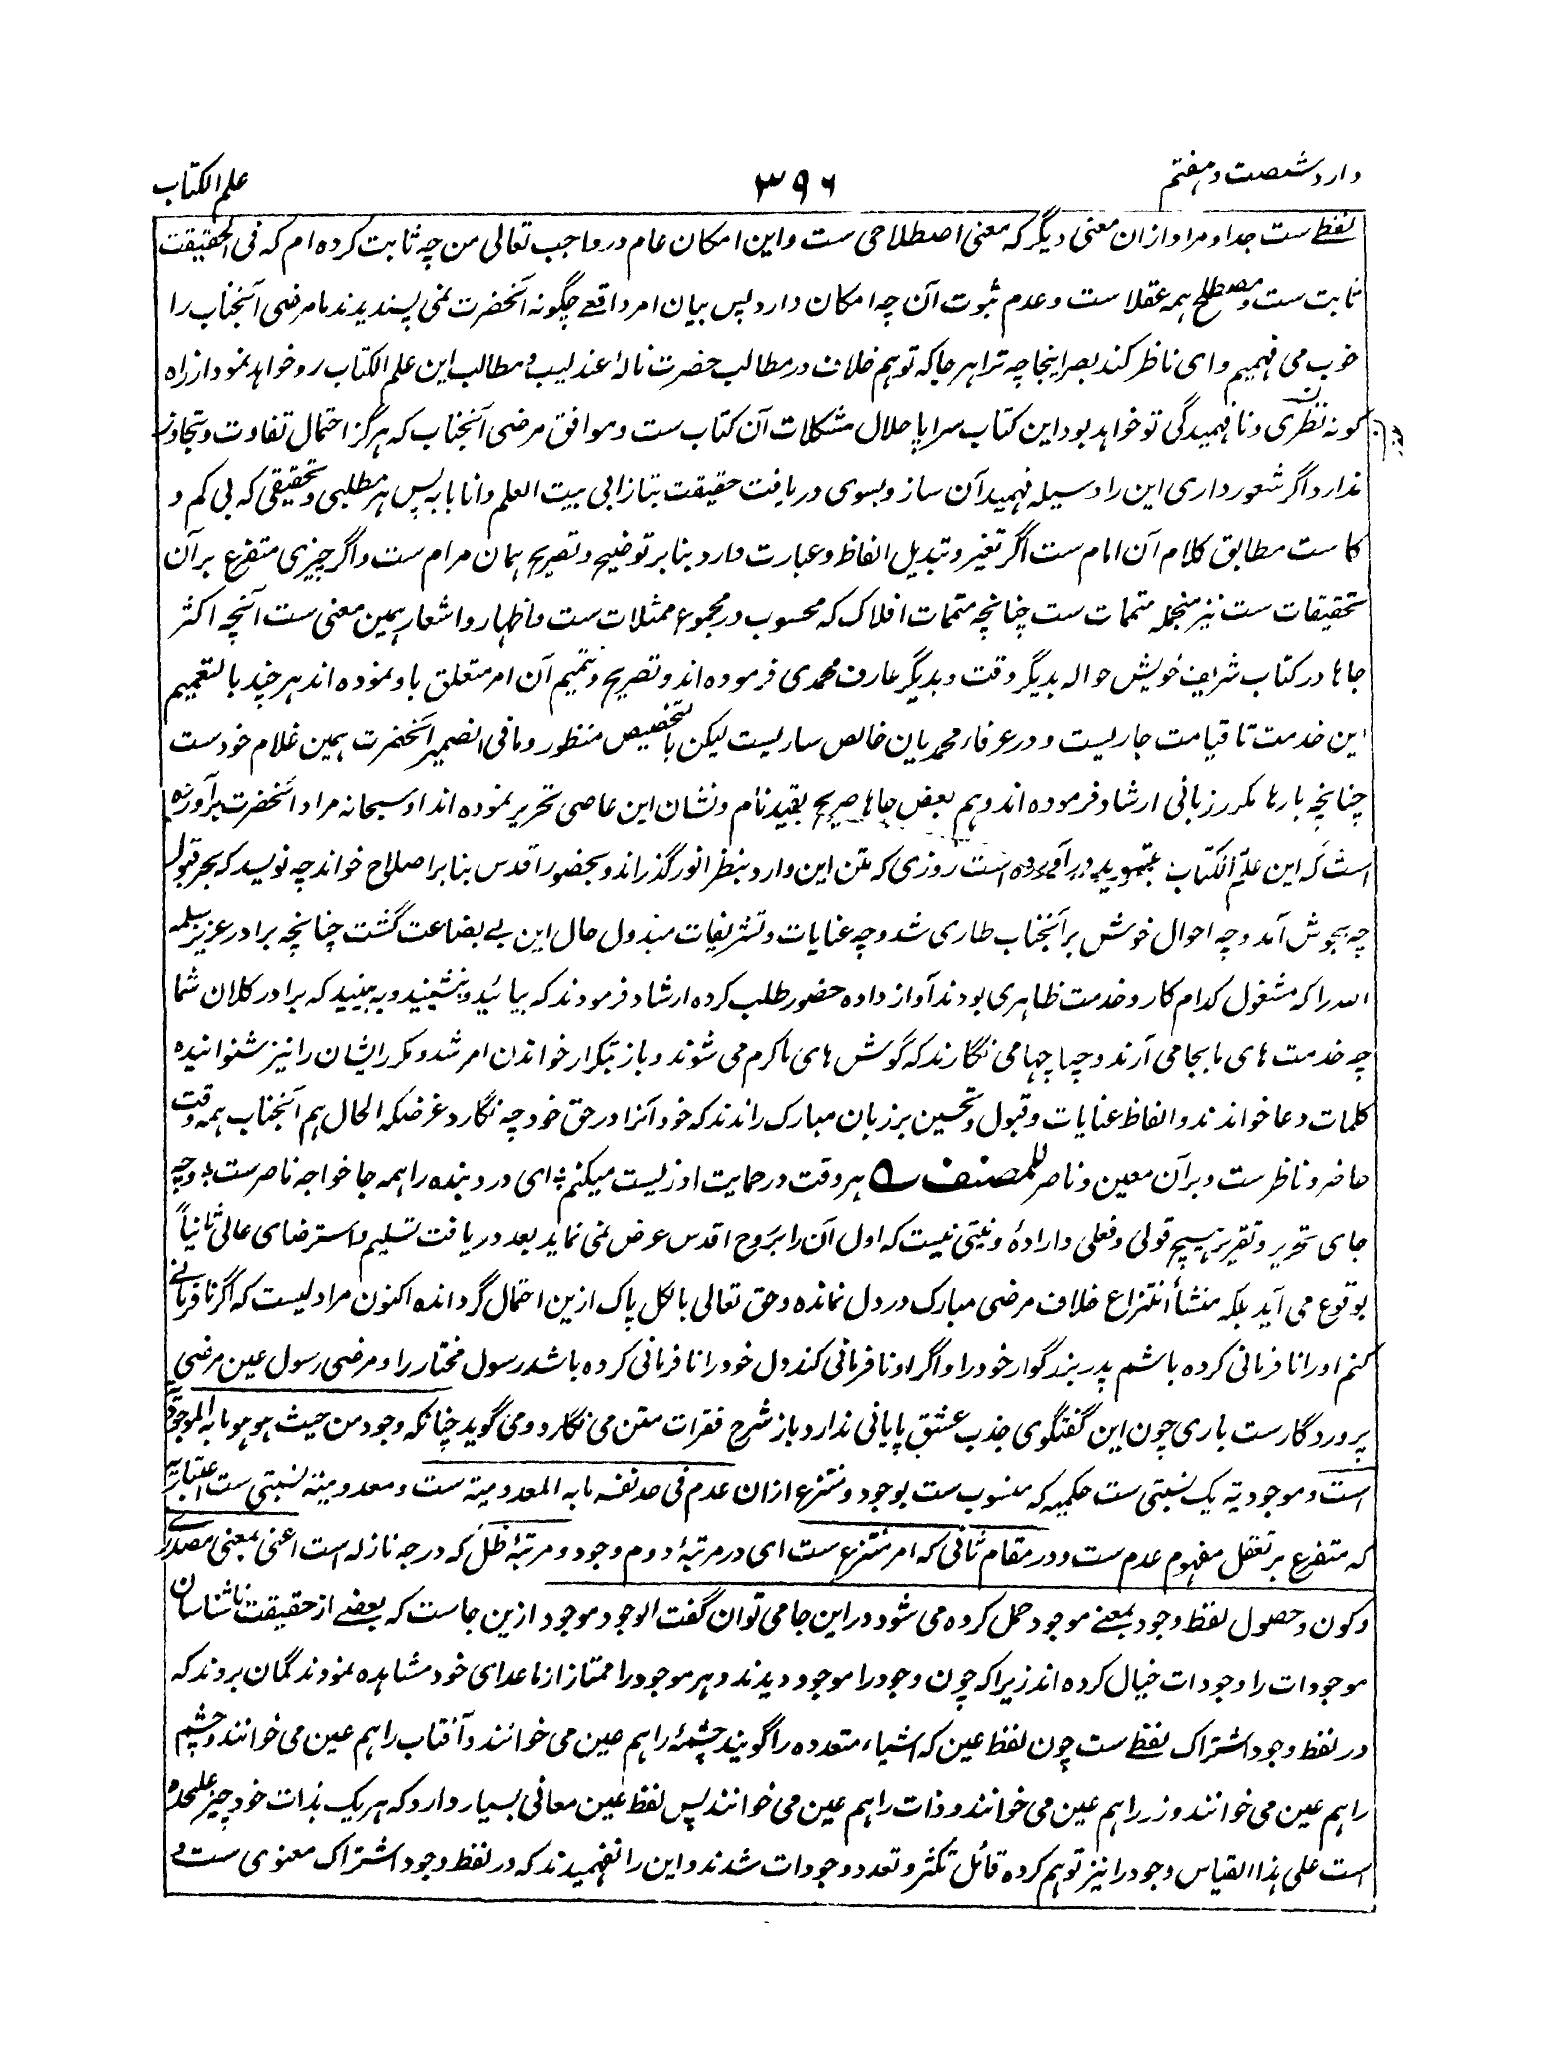 وارد شصت و هفتم
۳۹۶
علم الکتاب
لفظے ست جدا و مراد ازان معنی دیگر که معنی اصطلاحی ست و این امکان عام در واجب تعالی من چه ثابت کرده ام که فی الحقیقت
ثابت ست و مصطلح همه عقلا ست و عدم ثبوت آن چه امکان دارد پس بیان امر واقعے چگونه آنحضرت نمی پسندیدند ما مرضی آنجناب را
خوب می فهمیم و ای ناظر کند بصر اینجا چه ترا هر جا که توهم خلاف در مطالب حضرت نالهٔ عندلیب و مطالب این علم الکتاب رو خواهد نمود از راه
کوته نظری و نا فهمیدگی تو خواهد بود این کتاب سراپا حلال مشکلات آن کتاب ست و موافق مرضی آنجناب که هرگز احتمال تفاوت و تجاوز
ندارد اگر شعور داری این را وسیله فهمید آن ساز و بسوی دریافت حقیقت بتاز ابی بیت العلم و انا بابه پس هر مطلبی و تحقیقی که بی کم و
کاست مطابق کلام آن امام ست اگر تغیر و تبدیل الفاظ و عبارت دارد بنا بر توضیح و تصریح همان مرام ست و اگر چیزی متفرع بر آن
تحقیقات ست نیز منجمله متممات ست چنانچه متممات افلاک که محسوب در مجموع ممثلات ست و اظهار و اشعار همین معنی ست آنچه اکثر
جاها در کتاب شریف خویش حواله بدیگر وقت و بدیگر عارف محمدی فرموده اند و تصریح و تتمیم آن امر متعلق باو نموده اند هر چند بالتعمیم
این خدمت تا قیامت جاریست و در عرفاء محمدیان خالص ساریست لیکن بالتخصیص منظور و مافی الضمیر آنحضرت همین غلام خودست
چنانچه بارها مکرر زبانی ارشاد فرموده اند و هم بعض جاها صریح بقید نام و نشان این عاصی تحریر نموده اند او سبحانه مراد آنحضرت برآورده
است که این علم الکتاب بتسوید در آورده است روزی که متن این وارد بنظر انور گذراند و بحضور اقدس بنا بر اصلاح خواند چه نویسد که بحر قبول
چه بجوش آمد و چه احوال خوش بر آنجناب طاری شد و چه عنایات و تشریفات مبذول حال این بے بضاعت گشت چنانچه برادر عزیز سلمه
الله را که مشغول کدام کار و خدمت ظاهری بودند آواز داده حضور طلب کرده ارشاد فرمودند که بیائید و بنشینید و به بینید که برادر کلان شما
چه خدمت های ما بجا می آرند و چها چها می نگارند که گوش های ما کرم می شوند و باز بتکرار خواندن امر شد و مکرر ایشان را نیز شنوانیده
کلمات دعا خواندند و الفاظ عنایات و قبول و تحسین بر زبان مبارک راندند که خود آنرا در حق خود چه نگارد غرضکه الحال هم آنجناب همه وقت
حاضر و ناظر ست و بر آن معین و ناصر للمصنف ؎ هر وقت در حمایت او زیست میکنم ؛ ای درد بنده را همه جا خواجه ناصر ست ؛ و چه
جای تحریر و تقریر هیچ قولی و فعلی و ارادهٔ و نیتی نیست که اول آن را بروح اقدس عرض نمی نماید بعد دریافت تسلیم و استرضای عالی ثانیاً
بوقوع می آید بلکه منشأ انتزاع خلاف مرضی مبارک در دل نمانده و حق تعالی بالکل پاک ازین احتمال گردانده اکنون مراد لیست که اگر نا فرمانے
کنم او را نا فرمانی کرده باشم پدر بزرگوار خود را و اگر او نا فرمانی کند دل خود را نا فرمانی کرده باشد رسول مختار را و مرضی رسول عین مرضی
پروردگار ست باری چون این گفتگوی جذب عشق پایانی ندارد باز شرح فقرات متن می نگارد و می گوید چنانکه وجود من حیث هو هو ما به الموجودیة
است و موجودیته یک نسبتی ست حکمیه که منسوب ست بوجود و منتزع ازان عدم فی حد نفسه ما به المعدومیته ست و معدومیته نسبتی ست اعتباریه
که متفرع بر تعقل مفهوم عدم ست و در مقام ثانی که امر منتزع ست ای در مرتبهٔ دوم وجود و مرتبهٔ ظل که درجه نازله است اعنی بمعنی مصدرے
و کون و حصول لفظ وجود بمعنے موجود حمل کرده می شود در این جا می توان گفت الوجود موجود ازین جاست که بعضے از حقیقت نا شناسان
موجودات را وجودات خیال کرده اند زیرا که چون وجود را موجود دیدند و هر موجود را ممتاز از ما عدای خود مشاهده نمودند گمان بردند که
در لفظ وجود اشتراک لفظے ست چون لفظ عین که اشیاء متعدده را گویند چشمهٔ را هم عین می خوانند و آفتاب را هم عین می خوانند و چشم
را هم عین می خوانند و زر را هم عین می خوانند و ذات را هم عین می خوانند پس لفظ عین معانی بسیار دارد که هر یک بذات خود چیز علیحده
است علی هذا القیاس وجود را نیز توهم کرده قائل تکثر و تعدد وجودات شدند و این را نفهمیدند که در لفظ وجود اشتراک معنوی ست و